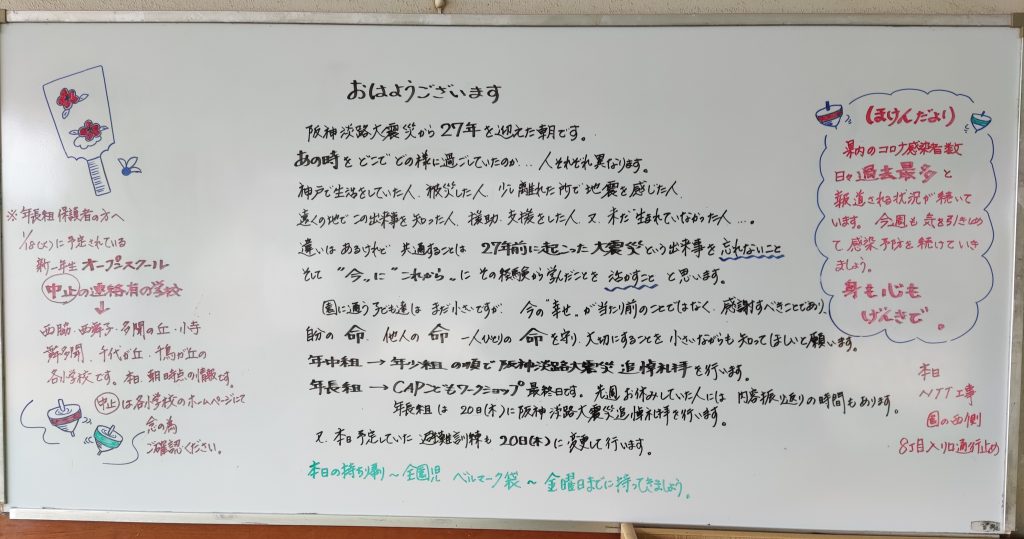 おはようございます
阪神淡路大震災から27年を迎えた朝です。
あの時をどこでどの様に過ごしていたのか…人それぞれ異なります。
神戸で生活をしていた人、被災した人、少し離れた所で地震を感じた人、
遠くの地でこの出来事を知った人、援助、支援をした人、又、未だ生まれていなかった人…。
違いはあるけれど 共通することは 27年前に起こった大震災という出来事を忘れないこと
そして "今"に "これから"に その経験から学んだことを 活かすこと と思います。
園に通う子ども達は まだ小さいですが、今の"幸せ"が当り前のことではなく、感謝すべきことであり、
自分の 命、他人の 命 一人ひとりの 命 を守り、大切にすることを小さいながらも知ってほしいと願います。
年中組 → 年少組の順で阪神淡路大震災追悼礼拝を行います。
年長組 → CAPこどもワークショップ最終日です。先週お休みしていた人には内容振り返りの時間もあります。
年長組は 20日(木)に阪神淡路大震災追悼礼拝を行います。
又、本日予定していた 避難訓練も 20日(木)に変更して行います。
本日の持ち帰り〜全園児 ベルマーク袋 〜 金曜日までに持ってきましょう。
※年長組保護者の方へ
1/18(火)に予定されている
新一年生オープンスクール
中止の連絡有の学校
↓
西脇・西舞子・多聞の丘・小寺
舞多聞、千代が丘・千鳥が丘の
各小学校です。本日、朝時点の情報です。
中止は各小学校のホームページにて
念の為
ご確認ください。
(ほけんだより)
県内のコロナ感染者数
日々過去最多と
報道される状況が続いて
います。今週も気を引きしめ
て感染予防を続けていき
ましょう。
身も心も
げんきで。
本日
NTT工事
園の西側
8丁目入り口通行止め